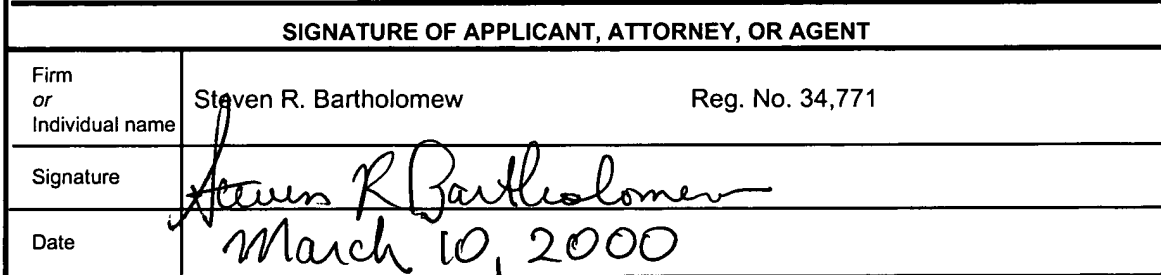 SIGNATURE OF APPLICANT, ATTORNEY, OR AGENT
Firm
or
Individual name
Steven R. Bartholomew Reg. No. 34,771
Signature
Steven R Bartholomew
Date
March 10, 2000